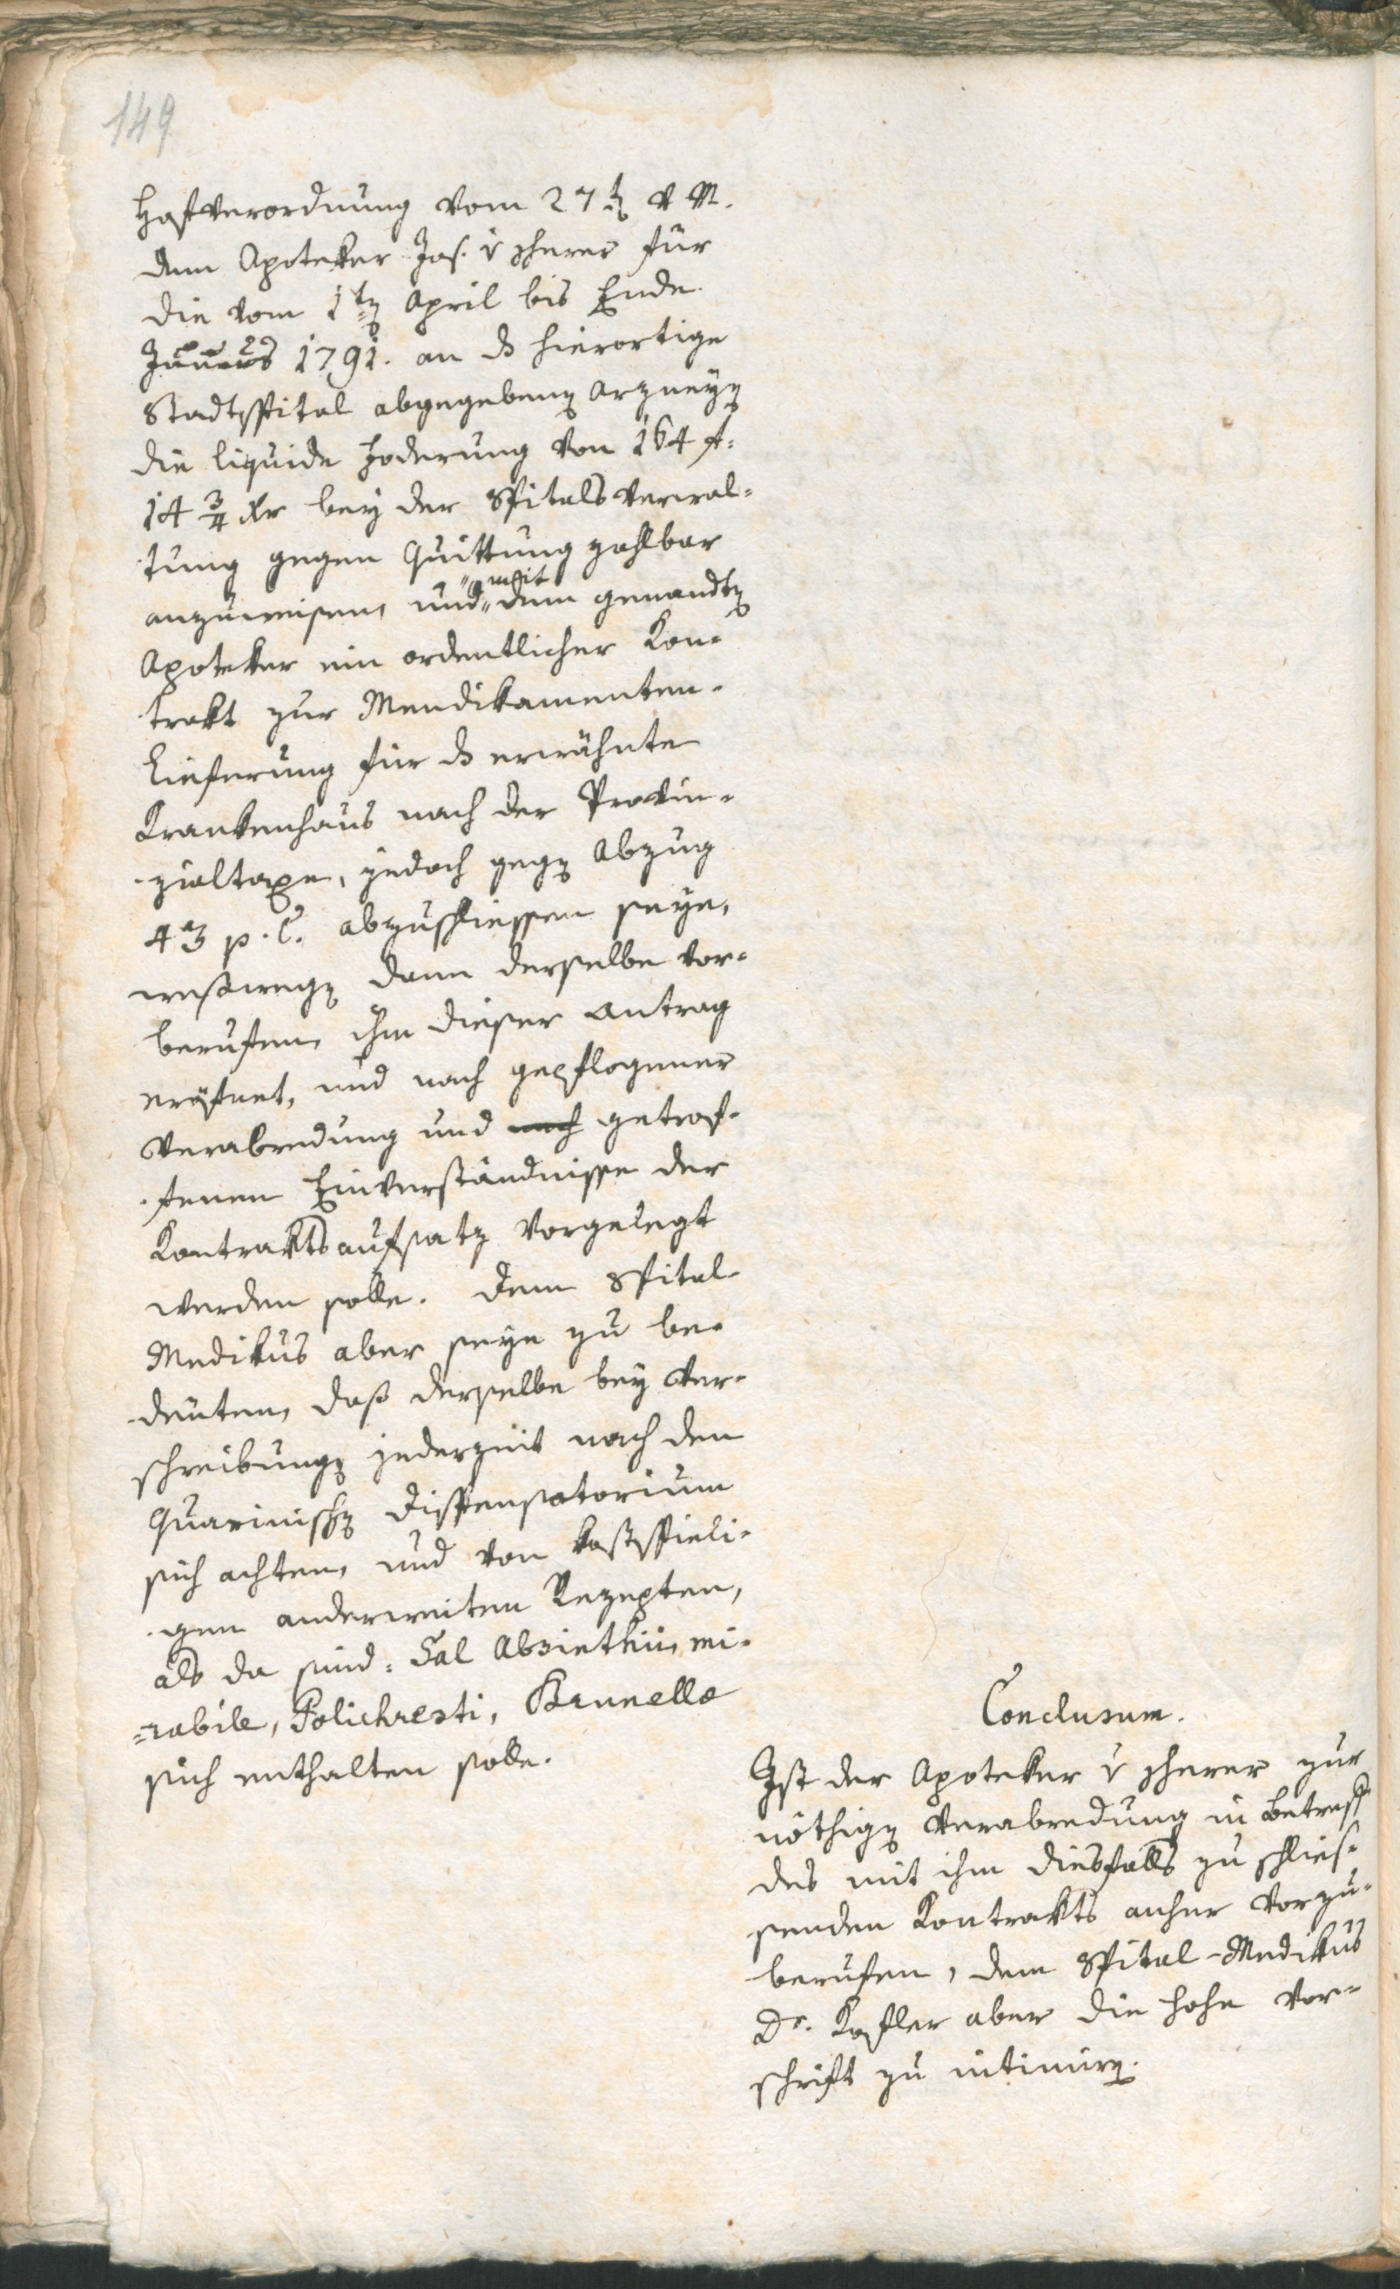 149
Hofverordnung vom 27ten v M.
dem Apoteker Jos.
die vom 1ten April bis Ende
1791. an ds hierortige
Stadtspital abgegebenen Arzneyen
die liquide Foderung von 164 f.
14 3/4 Xr bey der Spitalsverwal-
tung gegen Quittung zahlbar
anzuweisen, und mit dem genandten
Apoteker ein ordentlicher Kon-
trakt zur Mendikamenten-
Lieferung für ds erwähnte
Krankenhaus nach der Provin-
zialtaxe, jedoch gegen Abzug
p. C. abzuschliessen seye,
weßwegen dann derselbe vor-
beruffen, ihm dieser Antrag
eröfnet, und nach gepflogener
Verabredung und nach getrof-
fenen Einverständnisse der
Kontraktsaufsatz vorgelegt
werden solle. Dem Spital-
Medikus aber seye zu be-
deuten, daß derselbe bey Ver-
schreibungen jederzeit nach dem
Quarinischen Dispensatorium
sich achten, und von kostspieli-
gen anderweiten Rezepten,
als da sind: Sal Absinthii, mi-
=rabile, Polichresti, Brunella
sich enthalten solle.
Conclusum.
Ist der Apoteker zur
nöthigen Verabredung in Betreff
des mit ihm diesfalls zu schlies-
senden Kontrakts anher vorzu-
berufen, dem Spital-Medikus
Dr. aber die hohe Vor-
schrift zu intimiren.